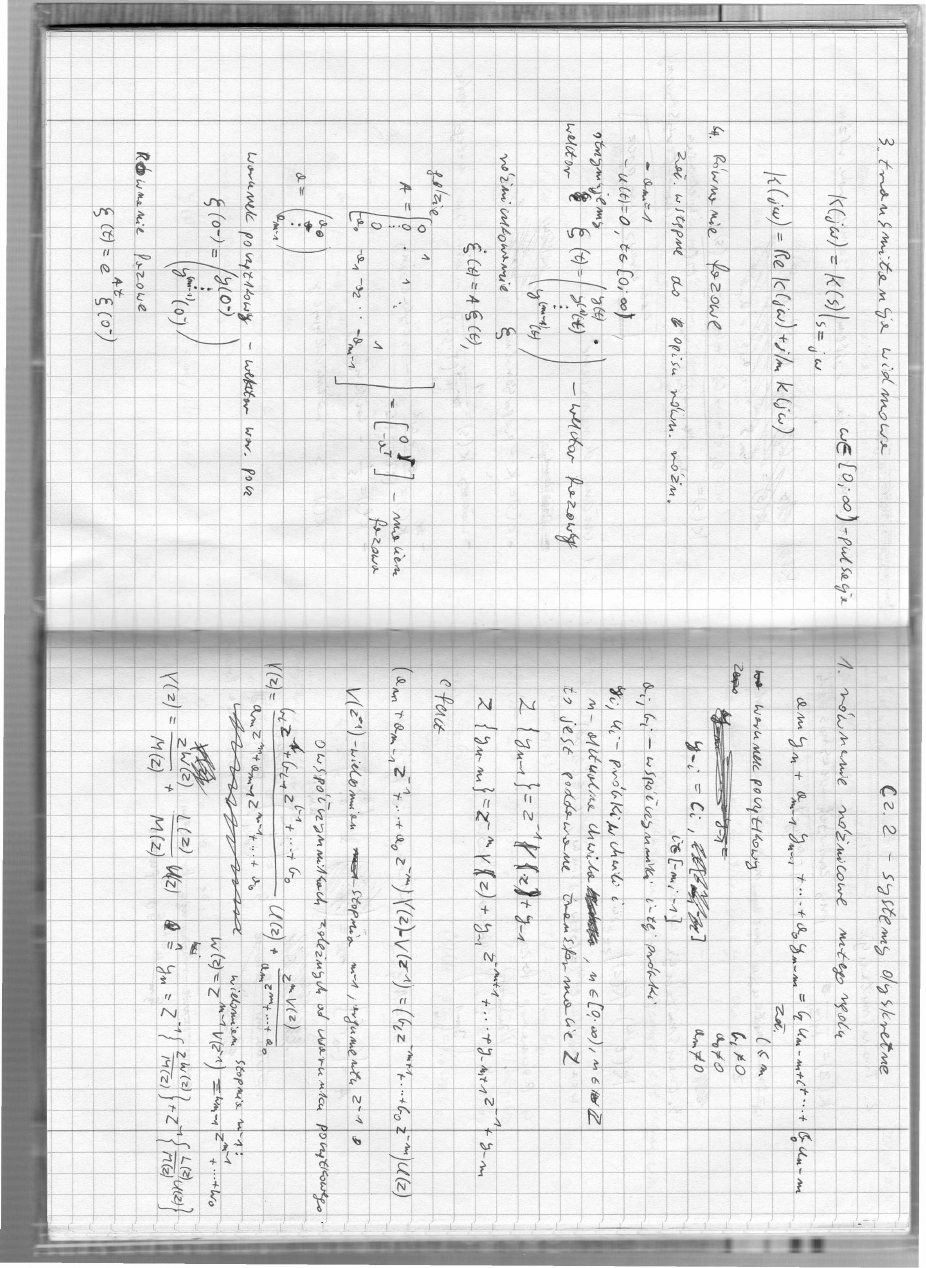 3. transmitancja widmowa
K(jω) = K(s)|s=jω ω∈[0;∞) - pulsacja
K(jω) = Re K(jω) + j Im K(jω)
4. Równanie fazowe
zał. wstępne do opisu równ. różn.
- am=1
- u(t)=0, t∈[0,∞)
otrzymujemy
wektor ξ(t) = (y(t) y⁽¹⁾(t) ⋮ y⁽ᵐ⁻¹⁾(t)) - wektor fazowy
różniczkowanie ξ
ξ̇(t) = Aξ(t),
gdzie
A = [0 1 0 ⋮ 1 ⋱ 1 -a0 -a1 -a2 … -am-1] = [0 I -aᵀ] - macierz fazowa
a = (a0 ⋮ am-1)
warunek początkowy - wektor war. pocz
ξ(0⁻) = (y(0⁻) ⋮ y⁽ᵐ⁻¹⁾(0⁻))
Równanie fazowe
ξ(t) = e^{At} ξ(0⁻)
Cz. 2 - systemy dyskretne
1. równanie różnicowe m-tego rzędu
am yn + am-1 yn-1 + … + a0 yn-m = bl un-m+l + … + b0 un-m
zał. l≤m
bl≠0
a0≠0
am≠0
warunek początkowy
y-i = Ci, i∈[m,-1]
ai, bi - współczynniki i-tej próbki
yi, ui - próbki w chwili i
n - aktualna chwila, n∈[0;∞), n∈Z
to jest poddawane transformacie Z
Z{yn-1} = z⁻¹Y(z) + y-1
Z{yn-m} = z⁻ᵐY(z) + y-1 z⁻ᵐ⁺¹ + … + y-m+1 z⁻¹ + y-m
(am + am-1 z⁻¹ + … + a0 z⁻ᵐ)Y(z) - V(z⁻¹) = (bl z⁻ᵐ⁺ˡ + … + b0 z⁻ᵐ)U(z)
V(z⁻¹) - wielomian stopnia m-1, argumentu z⁻¹
o współczynnikach zależnych od warunku początkowego.
Y(z) = (bl zˡ + bl-1 zˡ⁻¹ + … + b0)/(am zᵐ + am-1 zᵐ⁻¹ + … + a0) U(z) + zᵐV(z)/(am zᵐ + … + a0)
wielomian stopnia m-1:
W(z) = zᵐ⁻¹V(z⁻¹) = wm-1 zᵐ⁻¹ + … + w0
Y(z) = zW(z)/M(z) + L(z)/M(z) U(z) ⇒ yn = Z⁻¹{zW(z)/M(z)} + Z⁻¹{L(z)U(z)/M(z)}